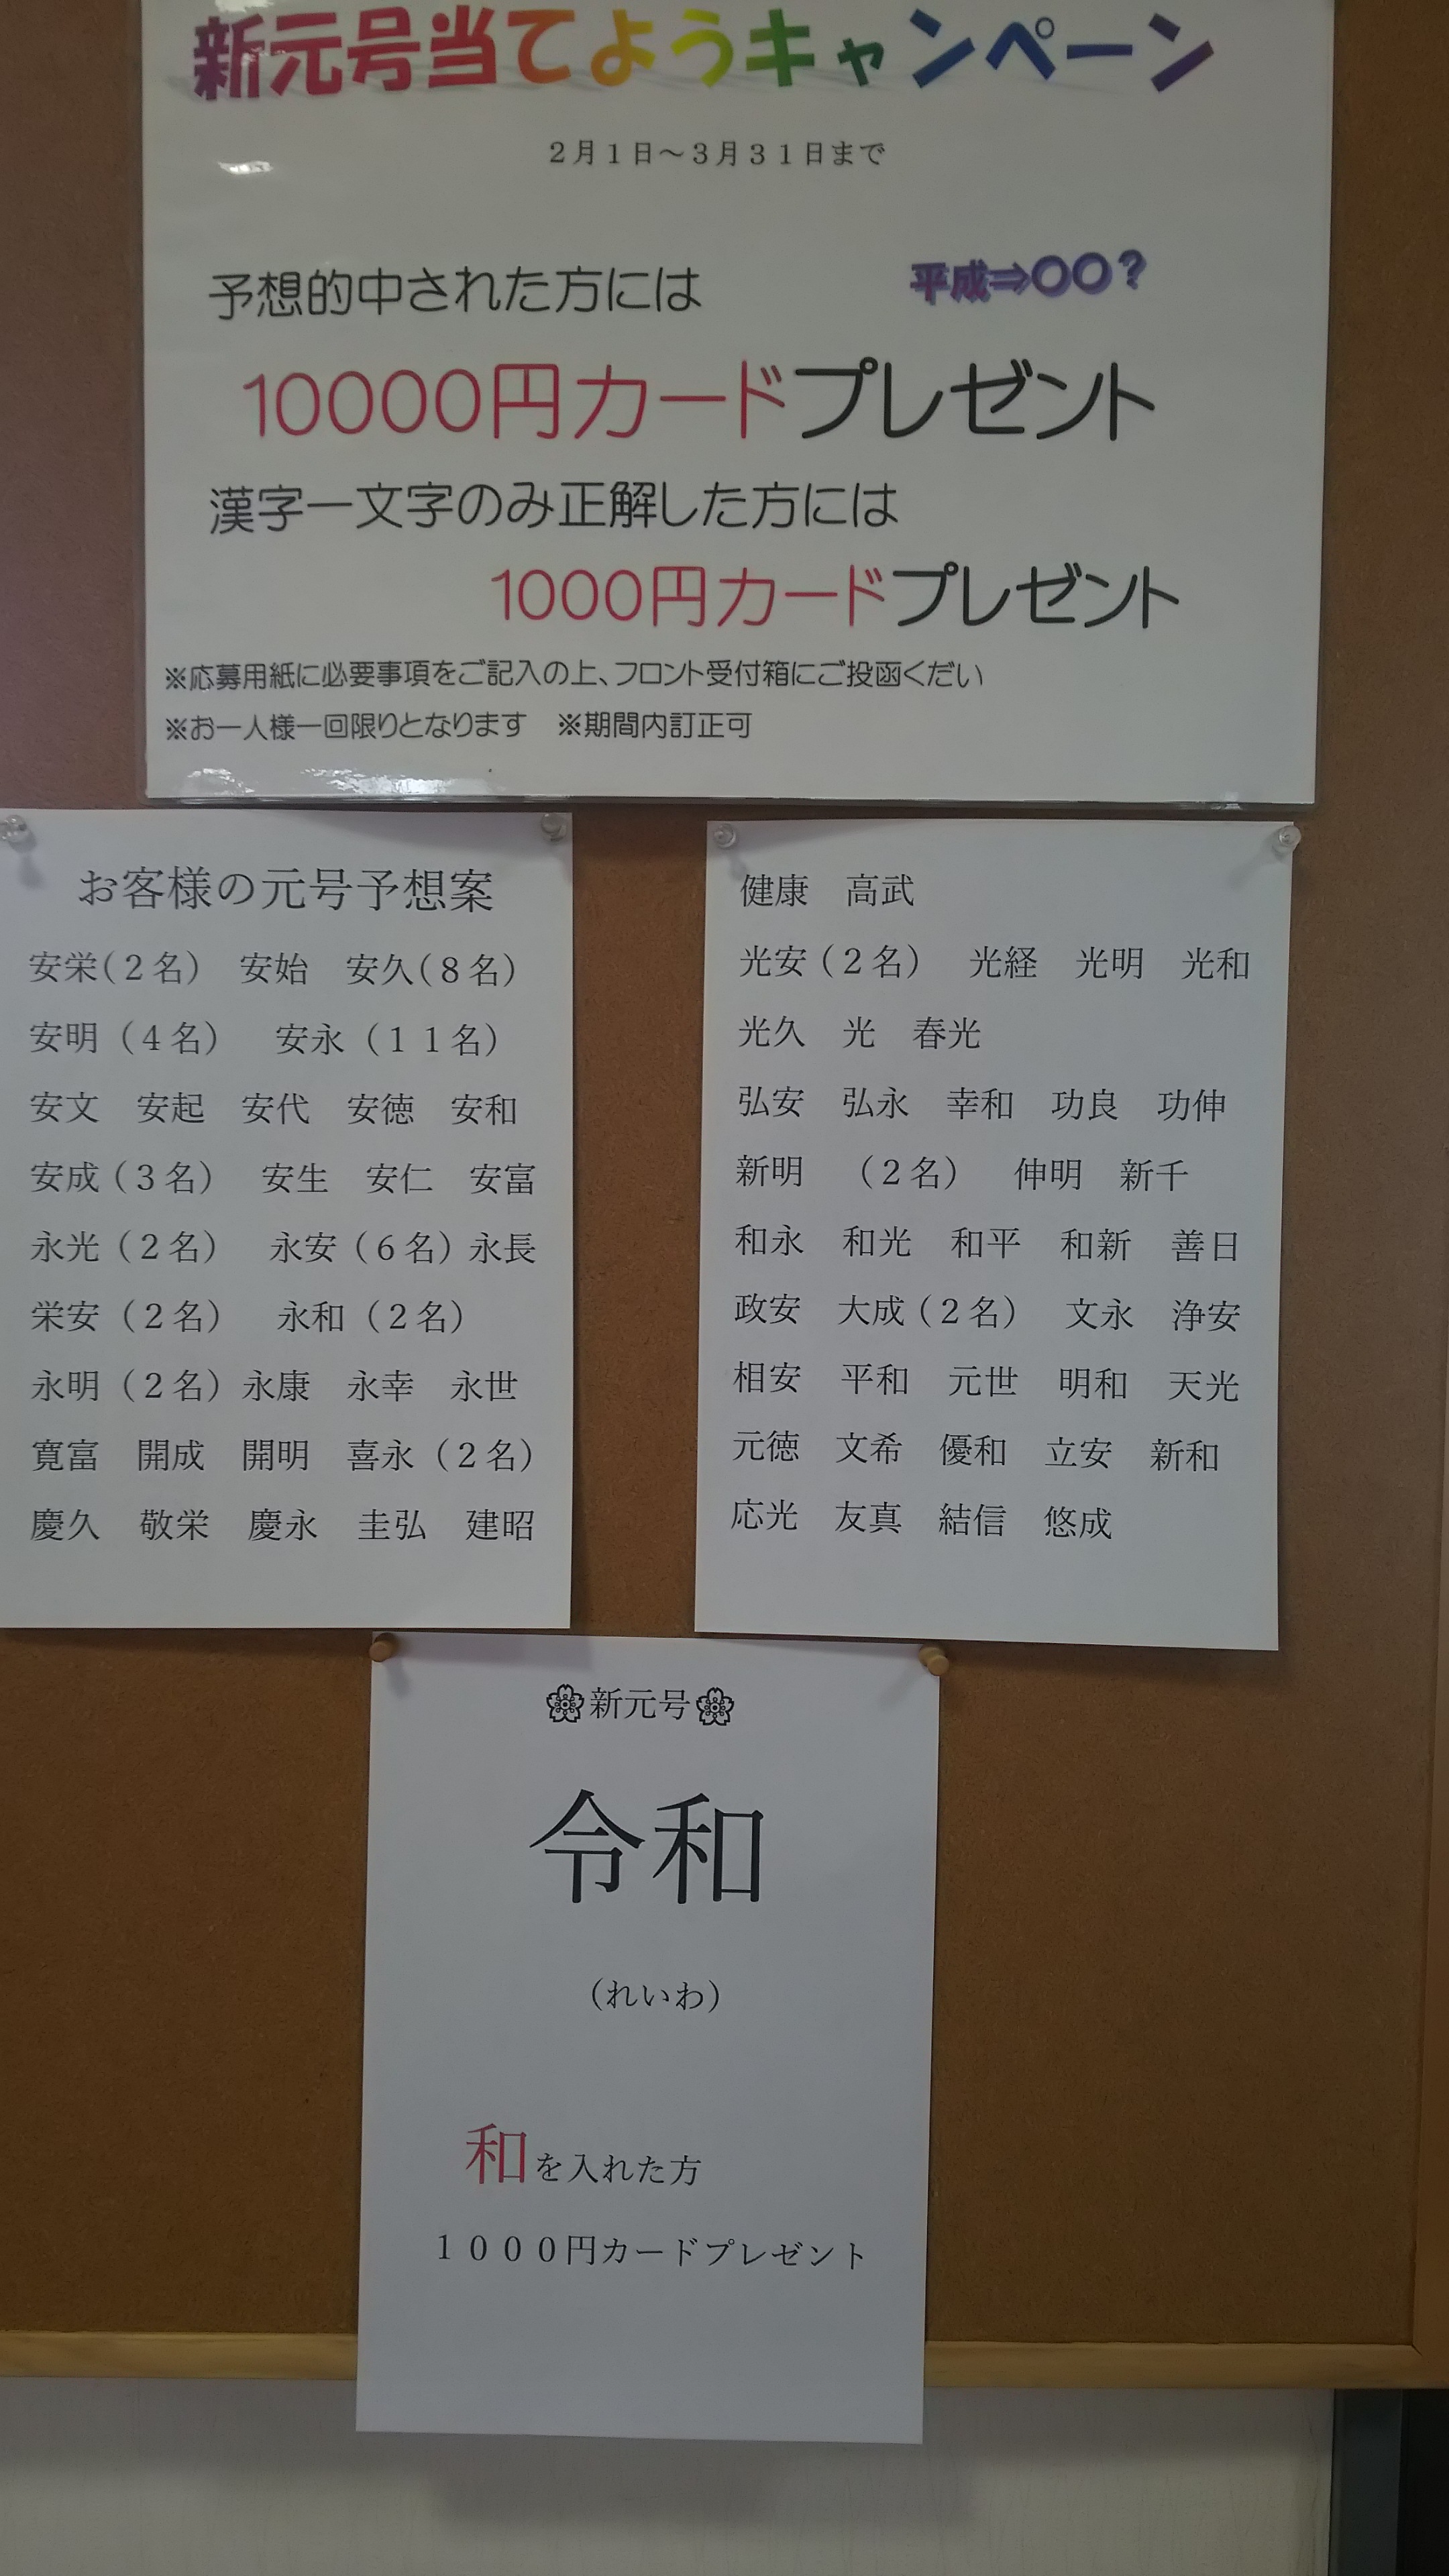 新元号当てようキャンペーン
2月1日～3月31日まで
予想的中された方には
平成⇒〇〇？
10000円カードプレゼント
漢字一文字のみ正解した方には
1000円カードプレゼント
※応募用紙に必要事項をご記入の上、フロント受付箱にご投函くだい
※お一人様一回限りとなります　※期間内訂正可
お客様の元号予想案
安栄(２名)　安始　安久(８名)
安明（４名）　安永（１１名）
安文　安起　安代　安徳　安和
安成（３名）　安生　安仁　安富
永光（２名）　永安（６名）永長
栄安（２名）　永和（２名）
永明（２名）永康　永幸　永世
寛富　開成　開明　喜永（２名）
慶久　敬栄　慶永　圭弘　建昭
健康　高武
光安（２名）　光経　光明　光和
光久　光　春光
弘安　弘永　幸和　功良　功伸
新明　（２名）　伸明　新千
和永　和光　和平　和新　善日
政安　大成（２名）　文永　浄安
相安　平和　元世　明和　天光
元徳　文希　優和　立安　新和
応光　友真　結信　悠成
新元号
令和
（れいわ）
和を入れた方
１０００円カードプレゼント